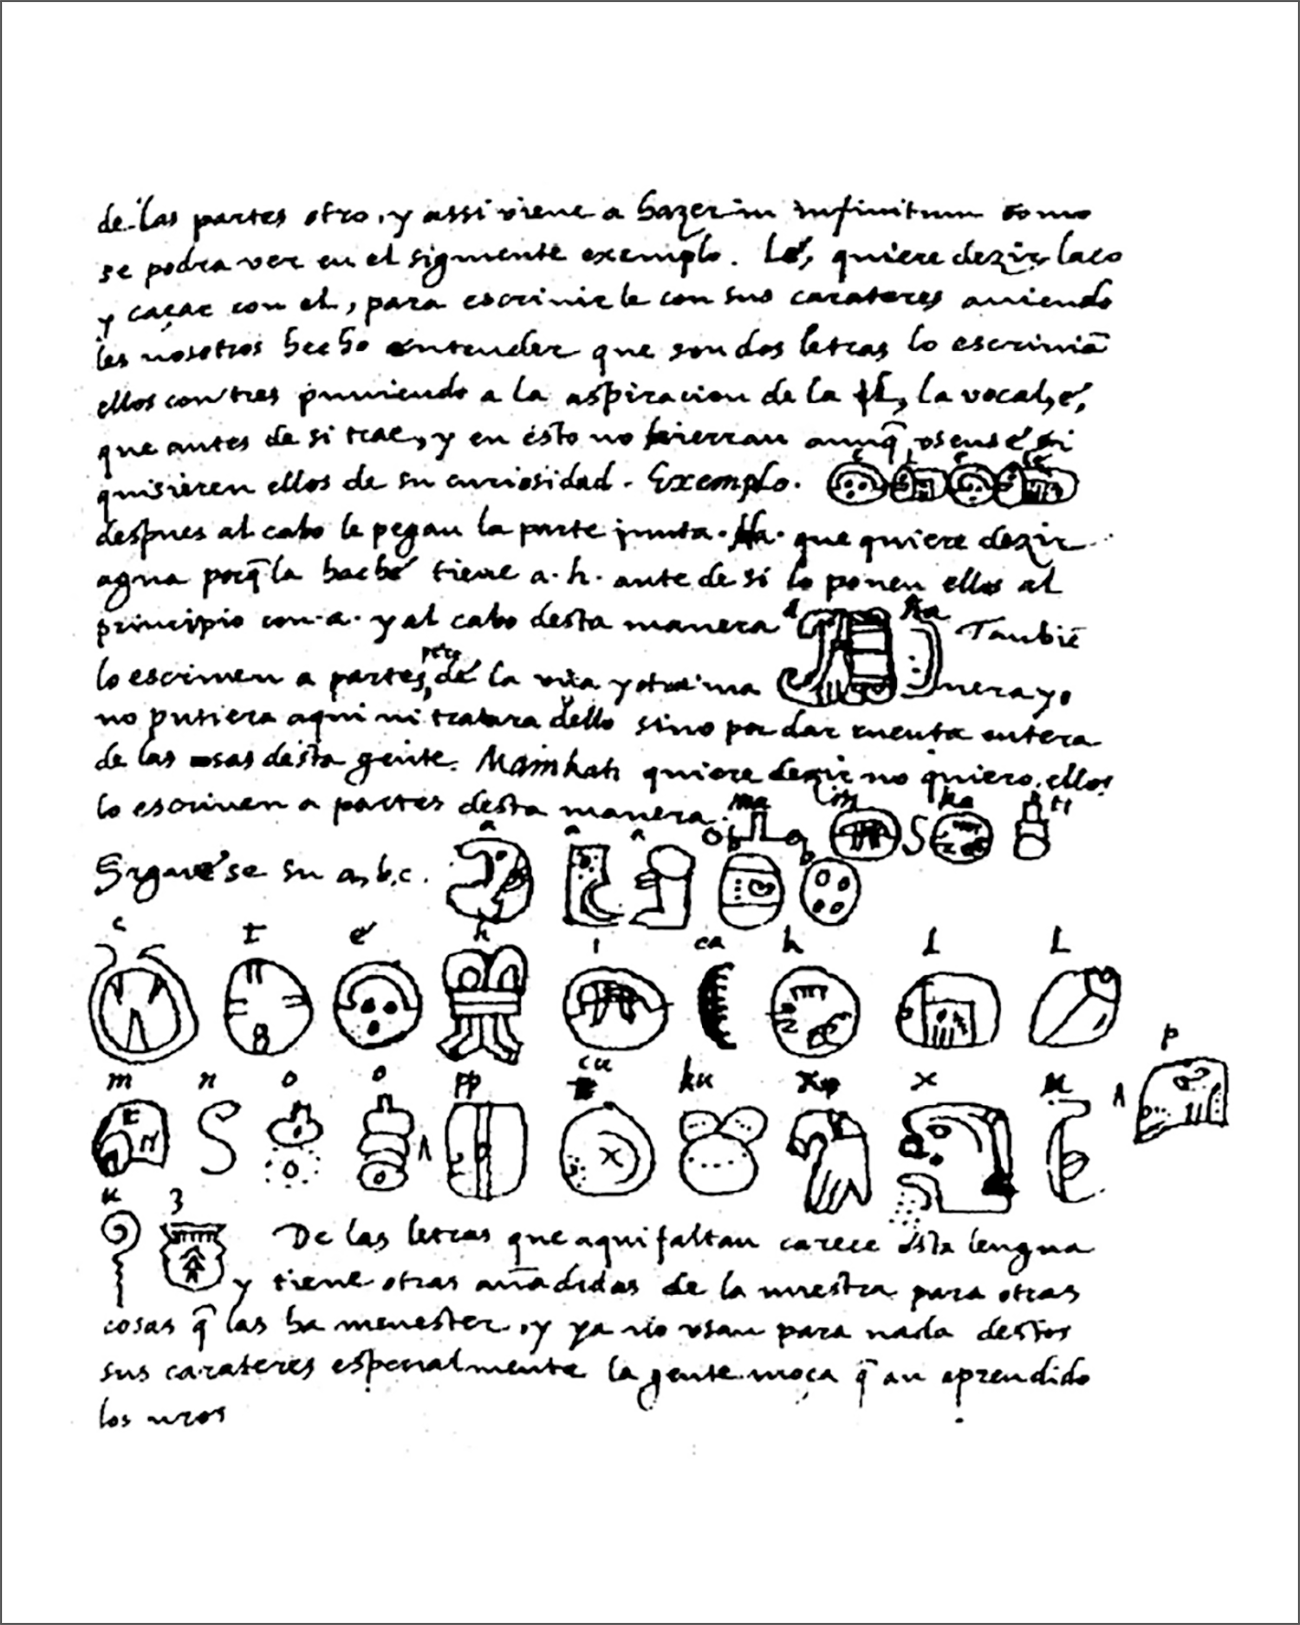 de las partes otro, y assi viene a hazer in infinitum como
se podra ver en el siguiente exemplo. Lé, quiere dezir laço
y caçar con el, para escrivirle con sus carateres aviendo
les nosotros hecho entender que son dos letras lo escriviā
ellos con tres puniendo a la aspiracion de la L, la vocal, é,
que antes de si trae, y en ésto no hierran aunq̄ usense si
quisieren ellos de su curiosidad. Exemplo. e L e Le
despues al cabo le pegan la parte junta. Ha. que quiere dezir
agua porq̄ la haché tiene a. h. ante de si lo ponen ellos al
principio con .a. y al cabo desta manera a ha Tanbiē
lo escriven a partes, pero de la una y otra ma nera yo
no pusiera aqui ni tratara dello sino por dar cuenta entera
de las cosas desta gente. Mainkati quiere dezir no quiero, ellos
lo escriven a partes desta manera. ma i n ka ti
Siguese su a, b, c. a a a b b
c t e h i ca k l l
m n o o pp p cu ku x x u
u z De las letras que aqui faltan carece esta lengua
y tiene otras añadidas de la nuestra para otras
cosas q̄ las ha menester, y ya no usan para nada destos
sus carateres especialmente la gente moça q̄ an aprendido
los nros